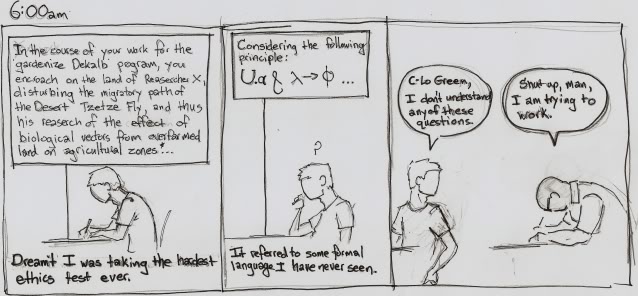 6:00am
In the course of your work for the
gardenize Dekalb pogram, you
encroach on the land of Reasercher X,
disturbing the migratory path of
the Desert Tzetze Fly, and thus
his reserch of the effect of
biological vectors from overfarmed
land on agricultural zones*...
Dreamt I was taking the hardest
ethics test ever.
Considering the following
principle:
U.a λ→ϕ ...
?
It referred to some formal
language I have never seen.
C-Lo Green,
I don't understand
any of these
questions.
Shut up, man,
I am trying to
work.